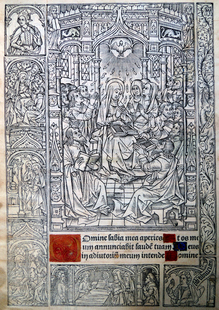 Omine labia mea aperies t os me
um annunciabit laudē tuam eus
in adiutoriū meum intende omine